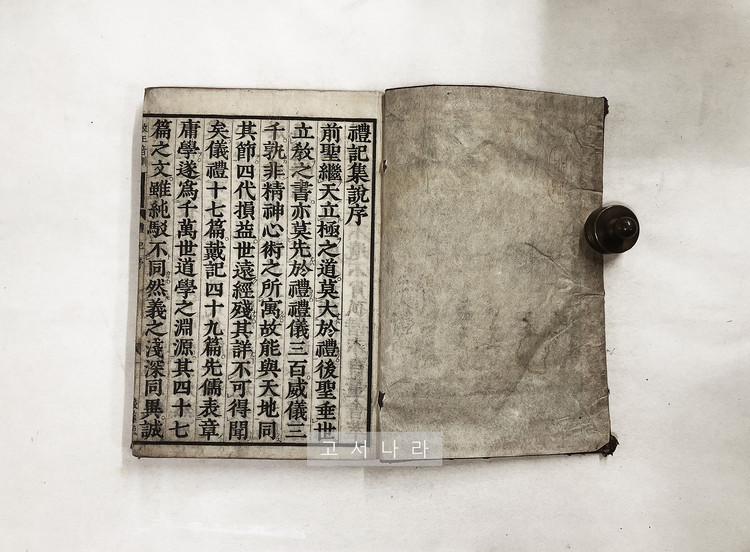 禮記集說序
前聖繼天立極之道莫大於禮後聖垂世
立敎之書亦莫先於禮禮儀三百威儀三
千孰非精神心術之所寓故能與天地同
其節四代損益世遠經殘其詳不可得聞
矣儀禮十七篇戴記四十九篇先儒表章
庸學遂爲千萬世道學之淵源其四十七
篇之文雖純駁不同然義之淺深同異誠
고서나라